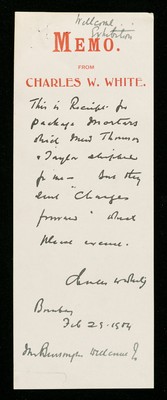 Wellcome
Exhibition
MEMO.
FROM
CHARLES W. WHITE.
This is Receipt for
package Mortars
which Messrs Thomson
& Taylor shipped
for me — but they
sent "Charges
forward" which
please excuse.
Charles W White
Bombay
Feb 25 - 1904
Messrs Burroughs Wellcome &